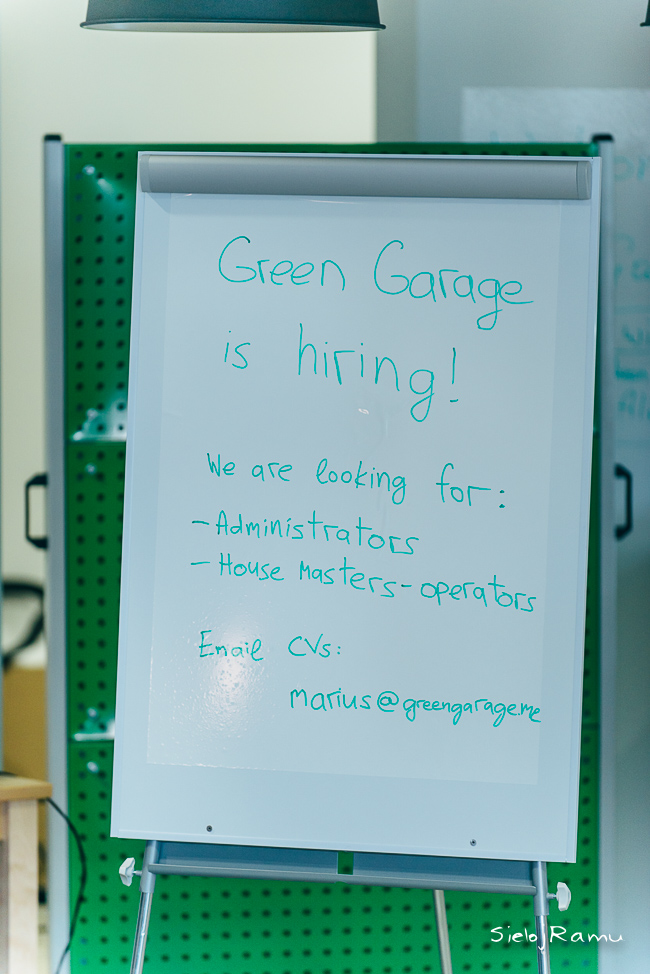 Green Garage
is hiring!
We are looking for:
- Administrators
- House Masters - operators
Email CVs:
marius@greengarage.me
Sieloj Ramu